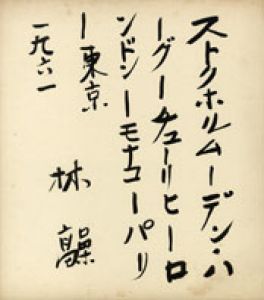 ストクホルムーデン・ハ
ーグーチューリヒーロ
ンドンーモナコーパリ
ー東京
一九六一
林 髞